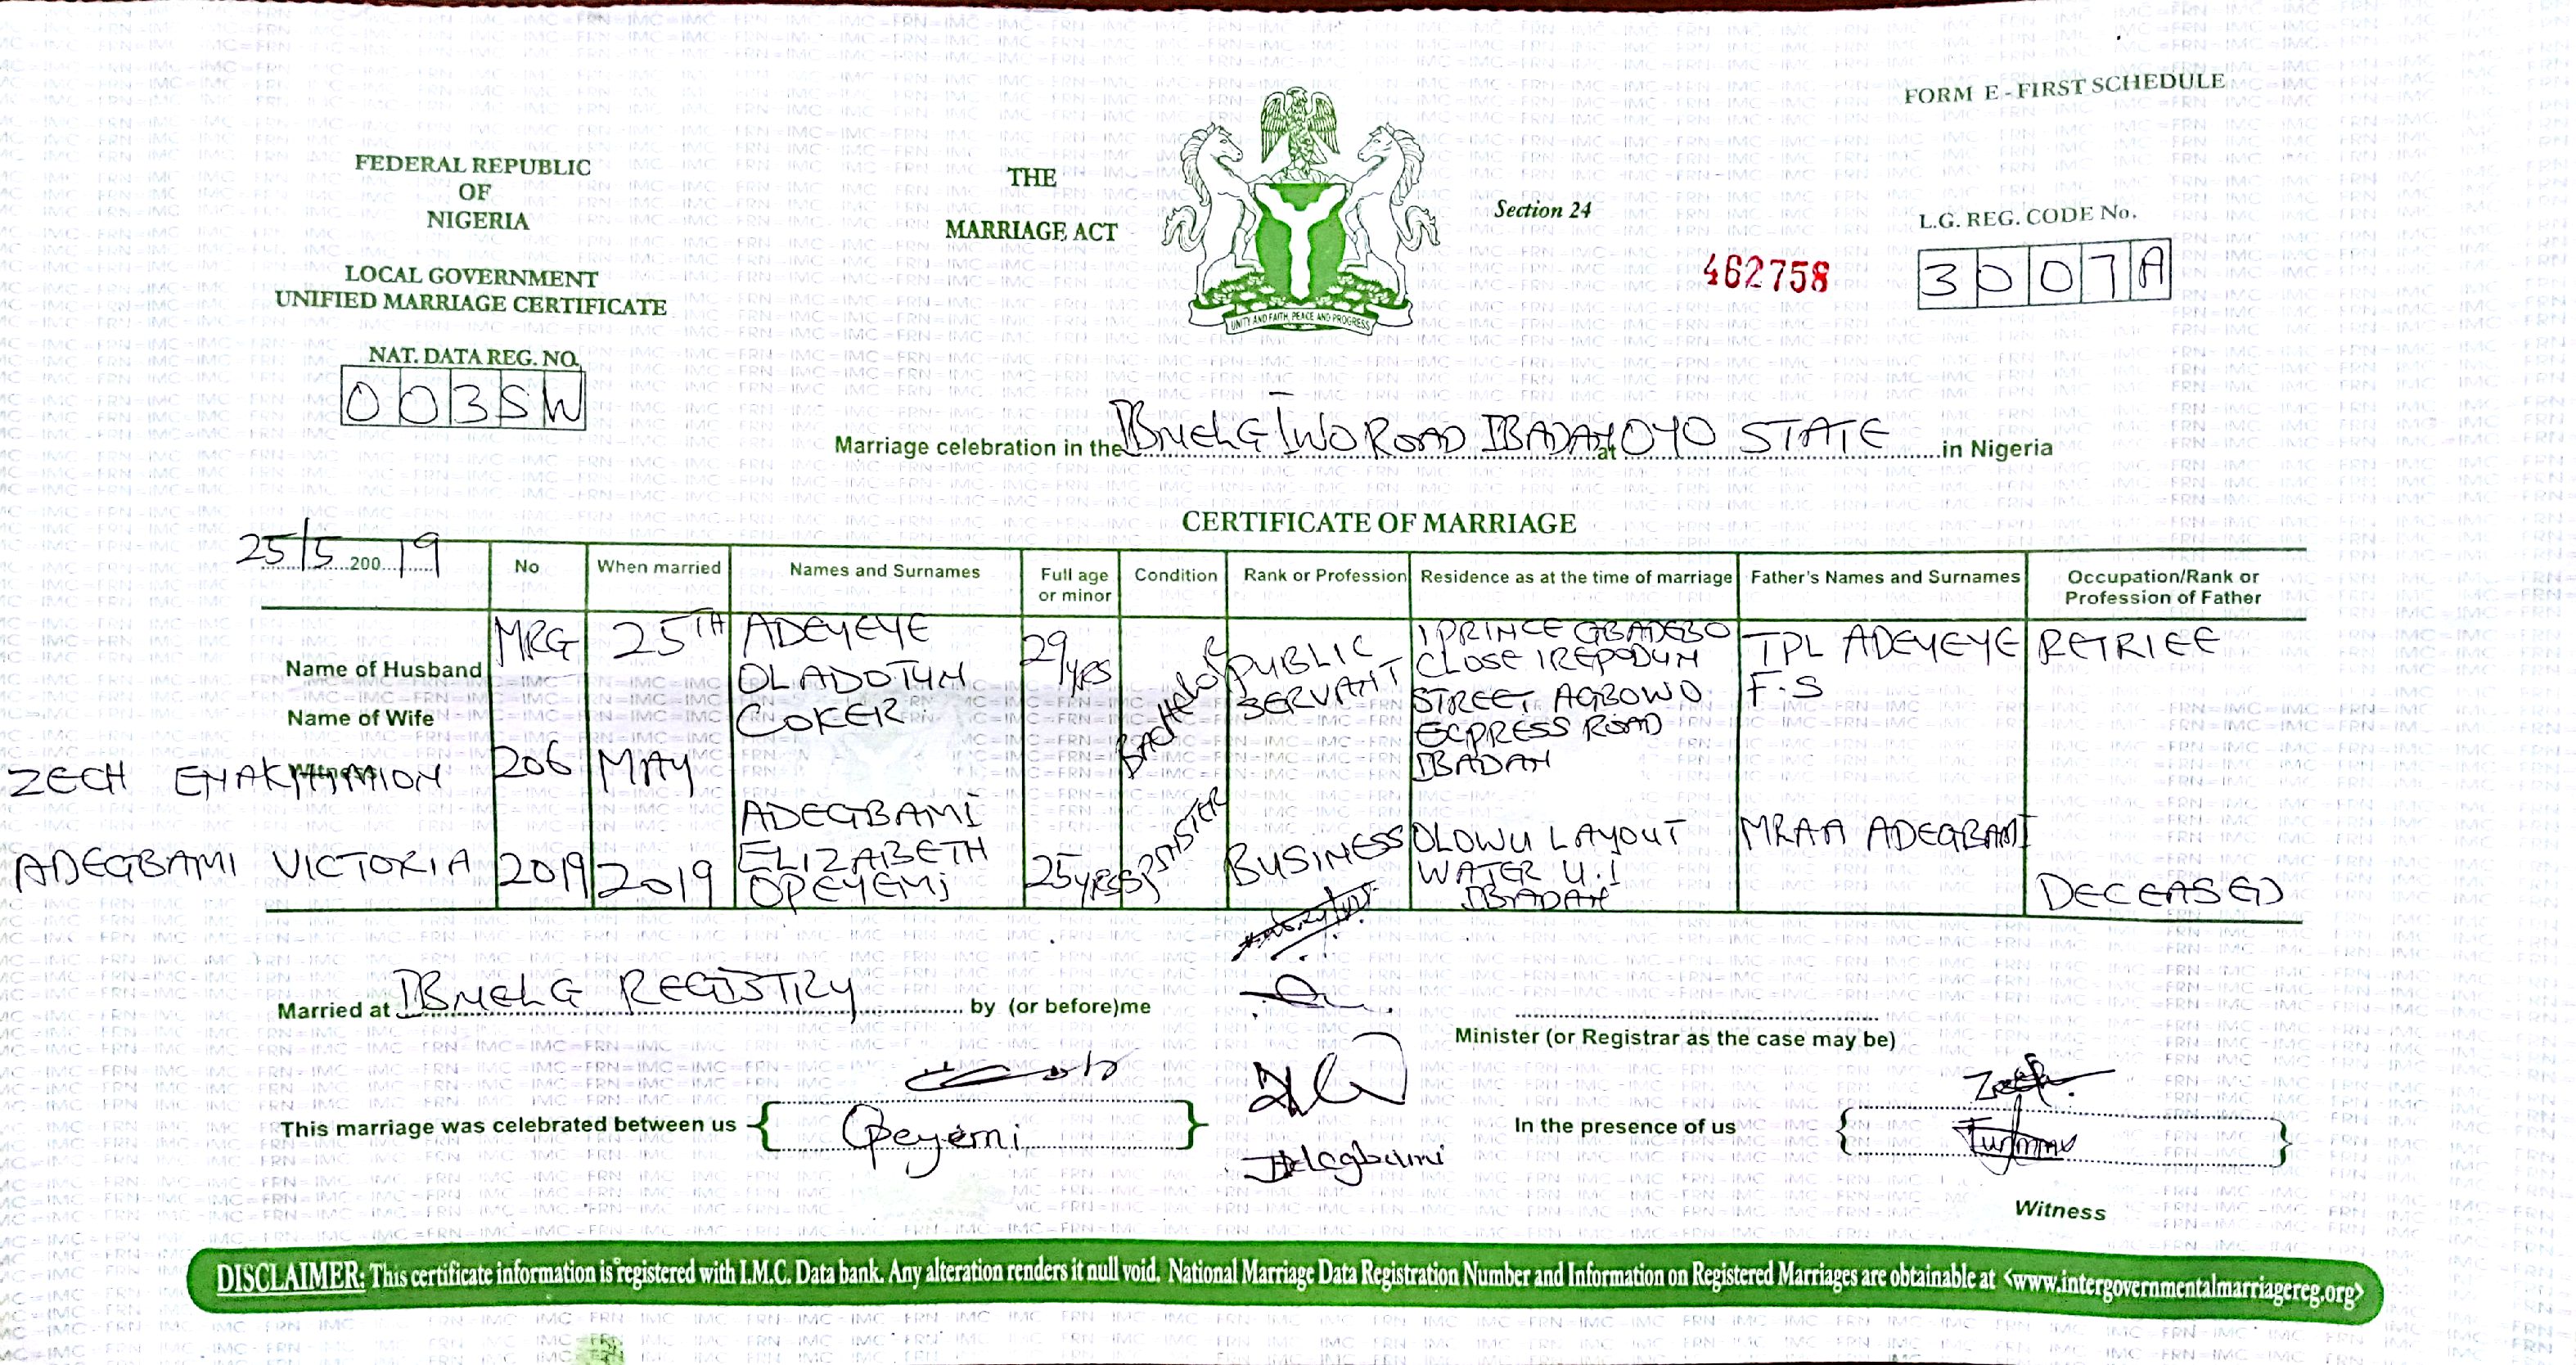 FORM E - FIRST SCHEDULE
FEDERAL REPUBLIC
OF
NIGERIA
LOCAL GOVERNMENT
UNIFIED MARRIAGE CERTIFICATE
NAT. DATA REG. NO.
003SW
THE
MARRIAGE ACT
UNITY AND FAITH, PEACE AND PROGRESS
Section 24
462758
L.G. REG. CODE No.
3007A
Marriage celebration in the IBNELG IWO ROAD IBADAN at OYO STATE in Nigeria
CERTIFICATE OF MARRIAGE
25/5 200 19
No
When married
Names and Surnames
Full age or minor
Condition
Rank or Profession
Residence as at the time of marriage
Father's Names and Surnames
Occupation/Rank or Profession of Father
Name of Husband
Name of Wife
Witness
ZECH
ADEGBAMI VICTORIA
MRG
206
2019
25TH
MAY
2019
ADEYEYE
OLADOTUN
COKER
29yrs
BACHELOR
PUBLIC
SERVANT
1 PRINCE GBADEBO
CLOSE IREPODUN
STREET AGBOWO
ECPRESS ROAD
IBADAN
TPL ADEYEYE
F.S
RETRIEE
ADEGBAMI
ELIZABETH
OPEYEMi
25yrs
SPINSTER
BUSINESS
OLOWU LAYOUT
WATER U.I
IBADAN
MRAA ADEGBAMI
DECEASED
Married at IBNELG REGISTRY by (or before)me
Minister (or Registrar as the case may be)
This marriage was celebrated between us
Opeyemi
Adegbami
In the presence of us
Witness
DISCLAIMER: This certificate information is registered with I.M.C. Data bank. Any alteration renders it null void. National Marriage Data Registration Number and Information on Registered Marriages are obtainable at <www.intergovernmentalmarriagereg.org>